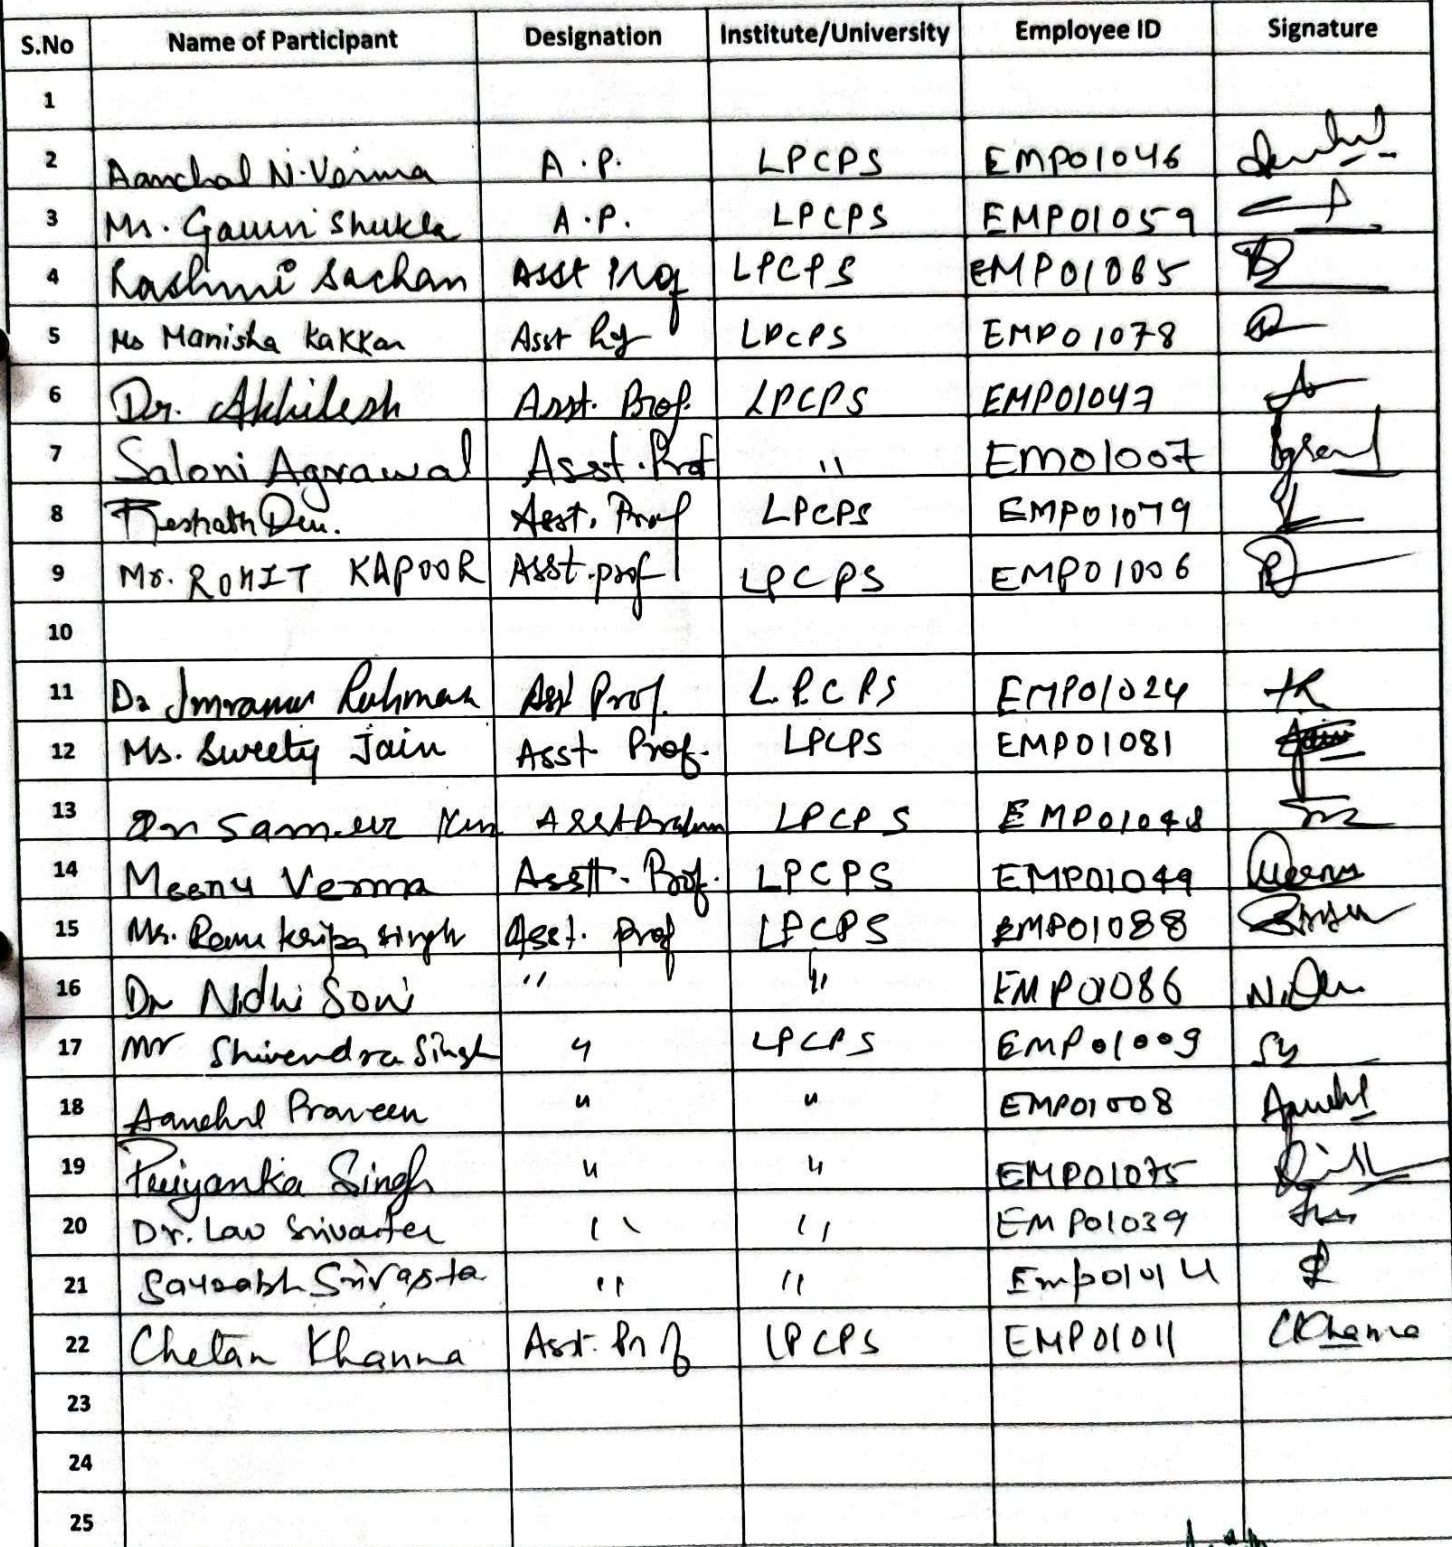 S.No Name of Participant Designation Institute/University Employee ID Signature
1
2 Aanchal N. Verma A.P. LPCPS EMP01046
3 Ms. Gauri Shukla A.P. LPCPS EMP01059
4 Rashmi Sachan Asst Prof LPCPS EMP01065
5 Ms Manisha Kakkar Asst Prof LPCPS EMP01078
6 Dr. Akhilesh Asst. Prof. LPCPS EMP01047
7 Saloni Agrawal Asst. Prof " EMO1007
8 Asst. Prof LPCPS EMP01079
9 Mr. ROHIT KAPOOR Asst. prof LPCPS EMP01006
10
11 Dr Imranur Rahman Asst Prof. LPCPS EMP01024
12 Ms. Sweety Jain Asst Prof. LPCPS EMP01081 Jain
13 Dr Sameer LPCPS EMP01048
14 Meenu Verma Asstt. Prof. LPCPS EMP01049 Meenu
15 Mr. Ram Kripa Singh Asst. Prof LPCPS EMP01088
16 Dr Nidhi Soni " " EMP01086
17 Mr Shivendra Singh " LPCPS EMP01009
18 Aanchal Praveen " " EMP01008 Aanchal
19 Priyanka Singh " " EMP01075
20 Dr. Lav Srivastava " " EMP01039
21 Saurabh Srivasta " " Emp01014
22 Chetan Khanna Asst. Prof LPCPS EMP01011 CKhanna
23
24
25